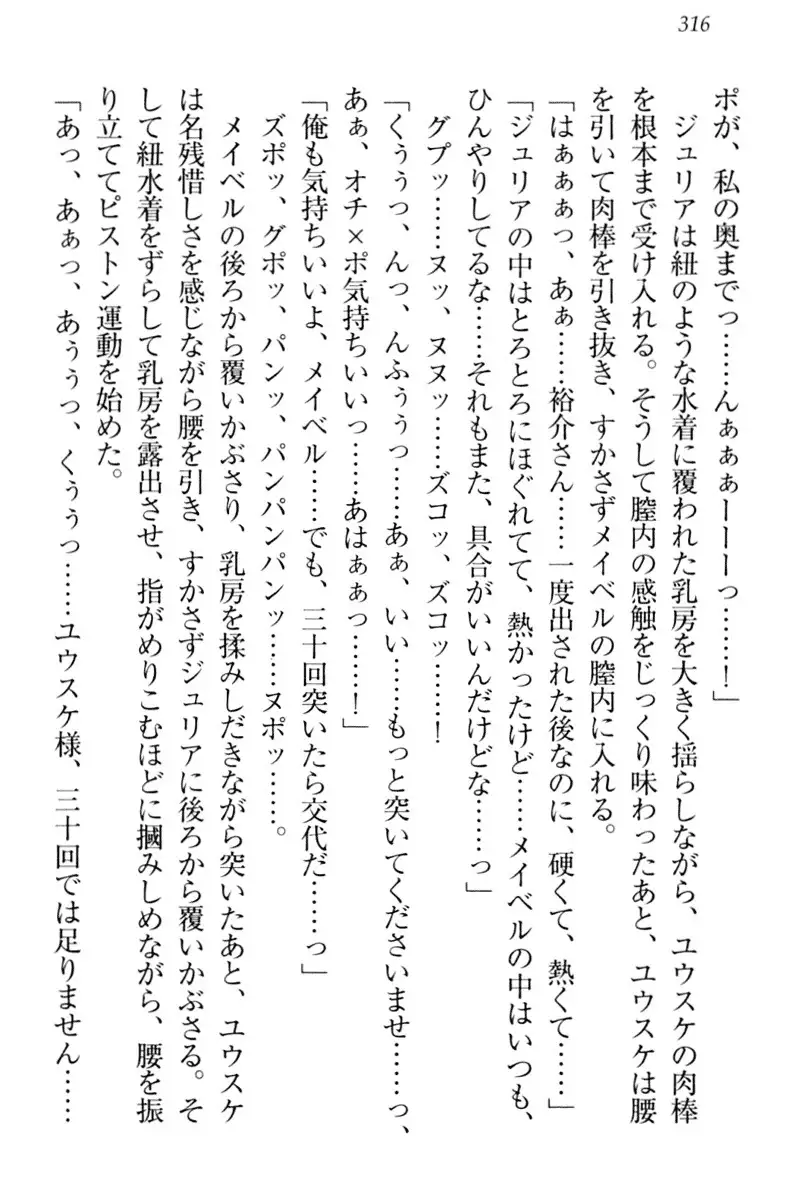 316
ポが、私の奥までっ……んぁぁぁーーーっ……！」
ジュリアは紐のような水着に覆われた乳房を大きく揺らしながら、ユウスケの肉棒
を根本まで受け入れる。そうして膣内の感触をじっくり味わったあと、ユウスケは腰
を引いて肉棒を引き抜き、すかさずメイベルの膣内に入れる。
「はぁぁぁっ、あぁ……裕介さん……一度出された後なのに、硬くて、熱くて……」
「ジュリアの中はとろとろにほぐれてて、熱かったけど……メイベルの中はいつも、
ひんやりしてるな……それもまた、具合がいいんだけどな……っ」
グプッ……ヌッ、ヌヌッ……ズコッ、ズコッ……！
「くぅぅっ、んっ、んふぅぅっ……あぁ、いい……もっと突いてくださいませ……っ、
あぁ、オチ×ポ気持ちいいっ……あはぁぁっ……！」
「俺も気持ちいいよ、メイベル……でも、三十回突いたら交代だ……っ」
ズポッ、グポッ、パンッ、パンパンパンッ……ヌポッ……。
メイベルの後ろから覆いかぶさり、乳房を揉みしだきながら突いたあと、ユウスケ
は名残惜しさを感じながら腰を引き、すかさずジュリアに後ろから覆いかぶさる。そ
して紐水着をずらして乳房を露出させ、指がめりこむほどに摑みしめながら、腰を振
り立ててピストン運動を始めた。
「あっ、あぁっ、あぅぅっ、くぅぅっ……ユウスケ様、三十回では足りません……